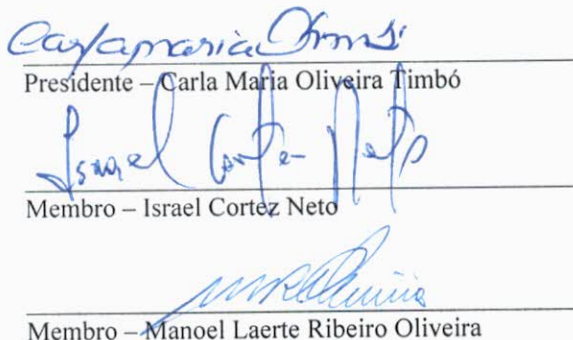 Presidente – Carla Maria Oliveira Timbó
Israel Cortez Neto
Membro – Israel Cortez Neto
Membro – Manoel Laerte Ribeiro Oliveira